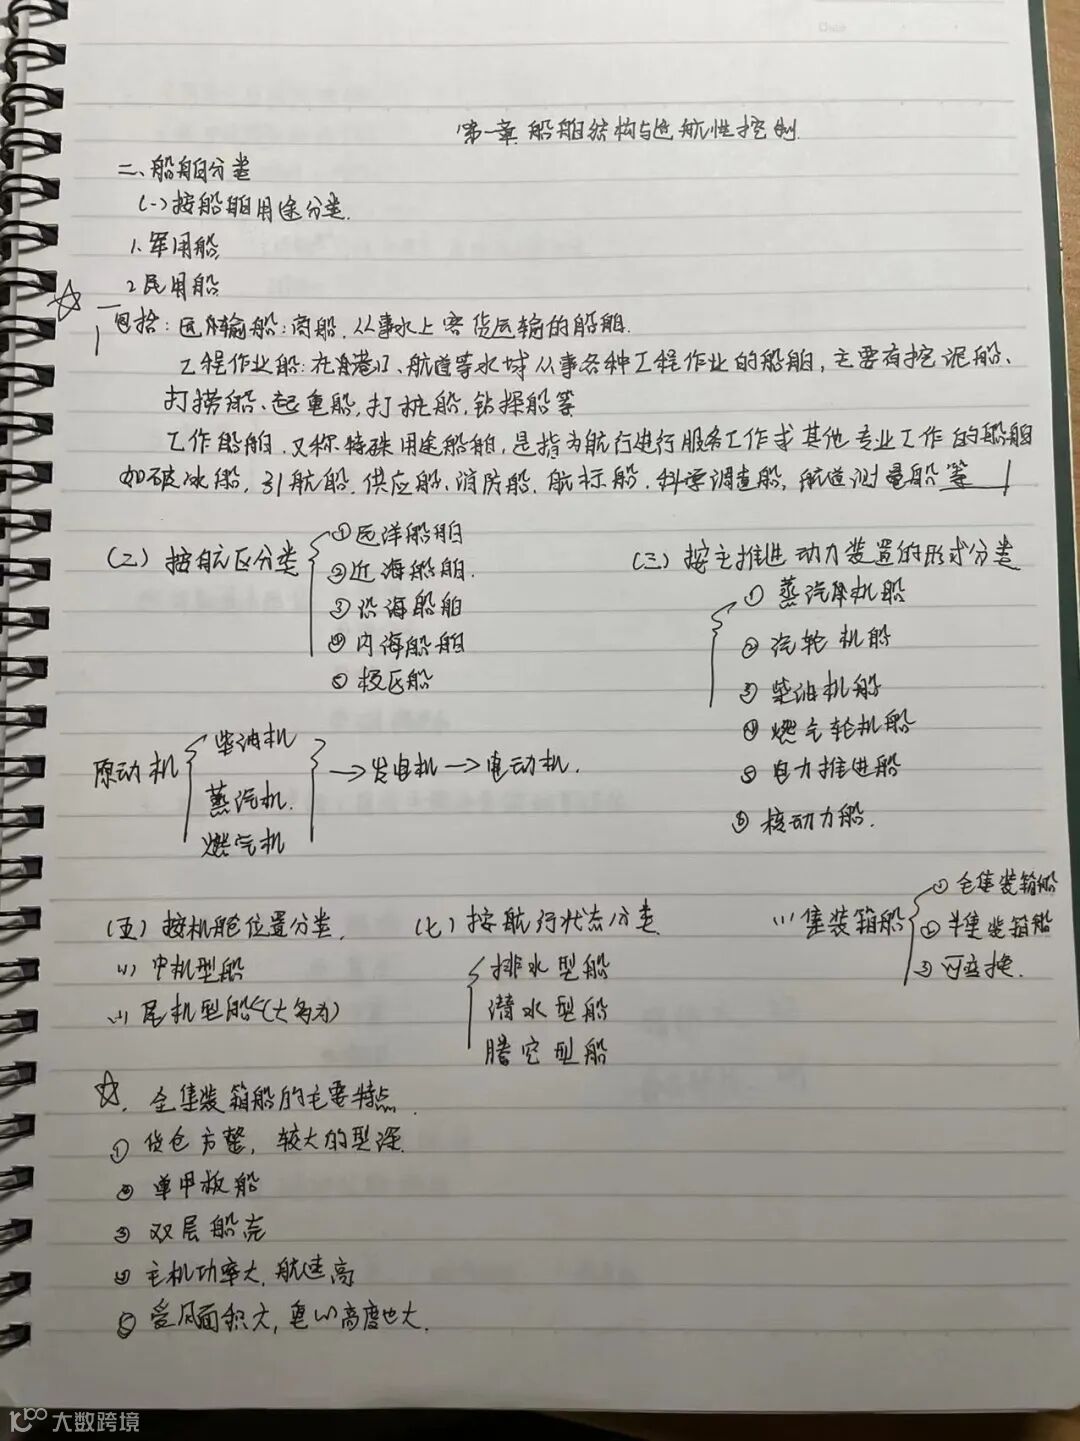 Date
第一章 船舶结构与适航性控制
二、船舶分类
(一)按船舶用途分类.
1.军用船
2.民用船
包括:运输船:商船.从事水上客货运输的船舶.
工程作业船:在港口、航道等水域从事各种工程作业的船舶,主要有挖泥船、
打捞船、起重船,打桩船,钻探船等
工作船舶.又称特殊用途船舶,是指为航行进行服务工作或其他专业工作的船舶
如破冰船,引航船,供应船、消防船.航标船.科学调查船,航道测量船等
(二)按航区分类
①远洋船舶
②近海船舶.
③沿海船舶
④内海船舶
⑤极区船
(三)按主推进动力装置的形式分类
①蒸汽机船
②汽轮机船
③柴油机船
④燃气轮机船
⑤电力推进船
⑥核动力船.
原动机
柴油机
蒸汽机.
燃气机
→发电机→电动机.
(五)按机舱位置分类.
(1)中机型船
(2)尾机型船(大多为)
(七)按航行状态分类.
排水型船
潜水型船
腾空型船
(1)集装箱船
①全集装箱船
②半集装箱船
③可变换.
☆.全集装箱船的主要特点.
①货仓方整,较大的型深.
②单甲板船
③双层船壳
④主机功率大.航速高
⑤受风面积大,重心高度也大.
大数跨境